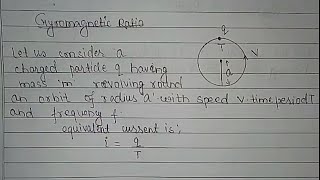 Gyromagnetic Ratio
q
T
v
a
Let us consider a
charged particle q having
mass 'm' revolving round
an orbit of radius 'a' with speed v. time period T
and frequency f.
equivalent current is:
i = q/T